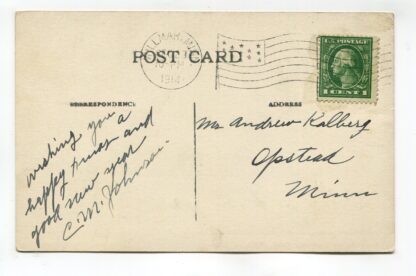 WILLMAR, MINN.
POST CARD
U.S. POSTAGE
1 CENT 1
CORRESPONDENCE
ADDRESS
wishing you a
happy Xmas and
good new year
C. M. Johnson.
Mr Andrew Kalberg
Opstead
Minn